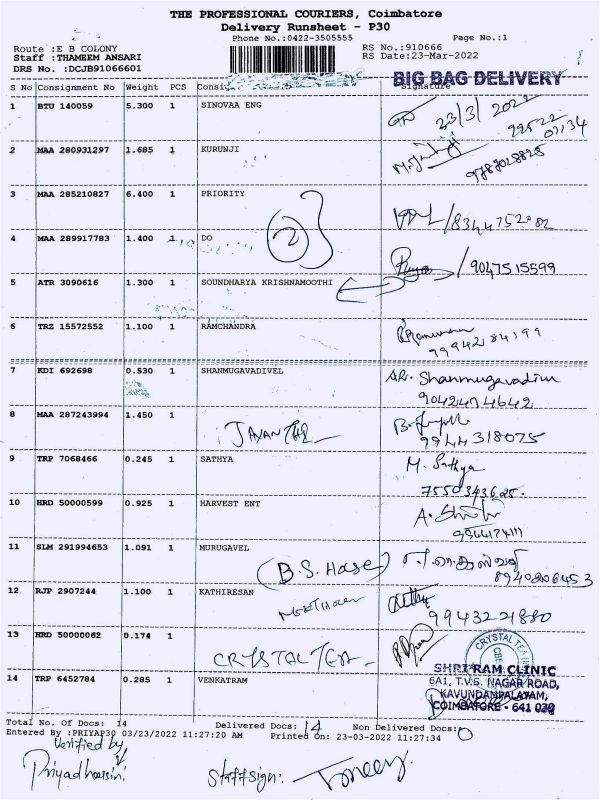 THE PROFESSIONAL COURIERS, Coimbatore
Delivery Runsheet - P30
Phone No.:0422-3505555 Page No.:1
Route :E B COLONY RS No.:910666
Staff :THAMEEM ANSARI RS Date:23-Mar-2022
DRS No. :DCJB91066601
BIG BAG DELIVERY
S No Consignment No Weight PCS Signature
1 BTU 140059 5.300 1 SINOVAA ENG 23/3/2022
2 MAA 280931297 1.685 1 KURUNJI
3 MAA 285210827 6.400 1 PRIORITY
4 MAA 289917783 1.400 1 DO 2 9047515599
5 ATR 3090616 1.300 1 SOUNDHARYA KRISHNAMOOTHI
6 TRZ 15572552 1.100 1 RAMCHANDRA 9994284199
7 KDI 692698 0.530 1 SHANMUGAVADIVEL AR. Shanmugavadivu
9042474642
8 MAA 287243994 1.450 1 9944318075
9 TRP 7068466 0.245 1 SATHYA M. Sathya
7550343625.
10 HRD 50000599 0.925 1 HARVEST ENT
11 SLM 291994653 1.091 1 MURUGAVEL
(B.S. Hose) 8940806453
12 RJP 2907244 1.100 1 KATHIRESAN
9943221880
13 HRD 50000062 0.174 1
CRYSTAL TEA
14 TRP 6452784 0.285 1 VENKATRAM
SHRI RAM CLINIC
6A1, T.V.S. NAGAR ROAD,
KAVUNDAMPALAYAM,
COIMBATORE - 641 030
Total No. Of Docs: 14 Delivered Docs: 14 Non Delivered Docs: 0
Entered By :PRIYAP30 03/23/2022 11:27:20 AM Printed On: 23-03-2022 11:27:34
Verified by
Priyadharsini
Staff sign: